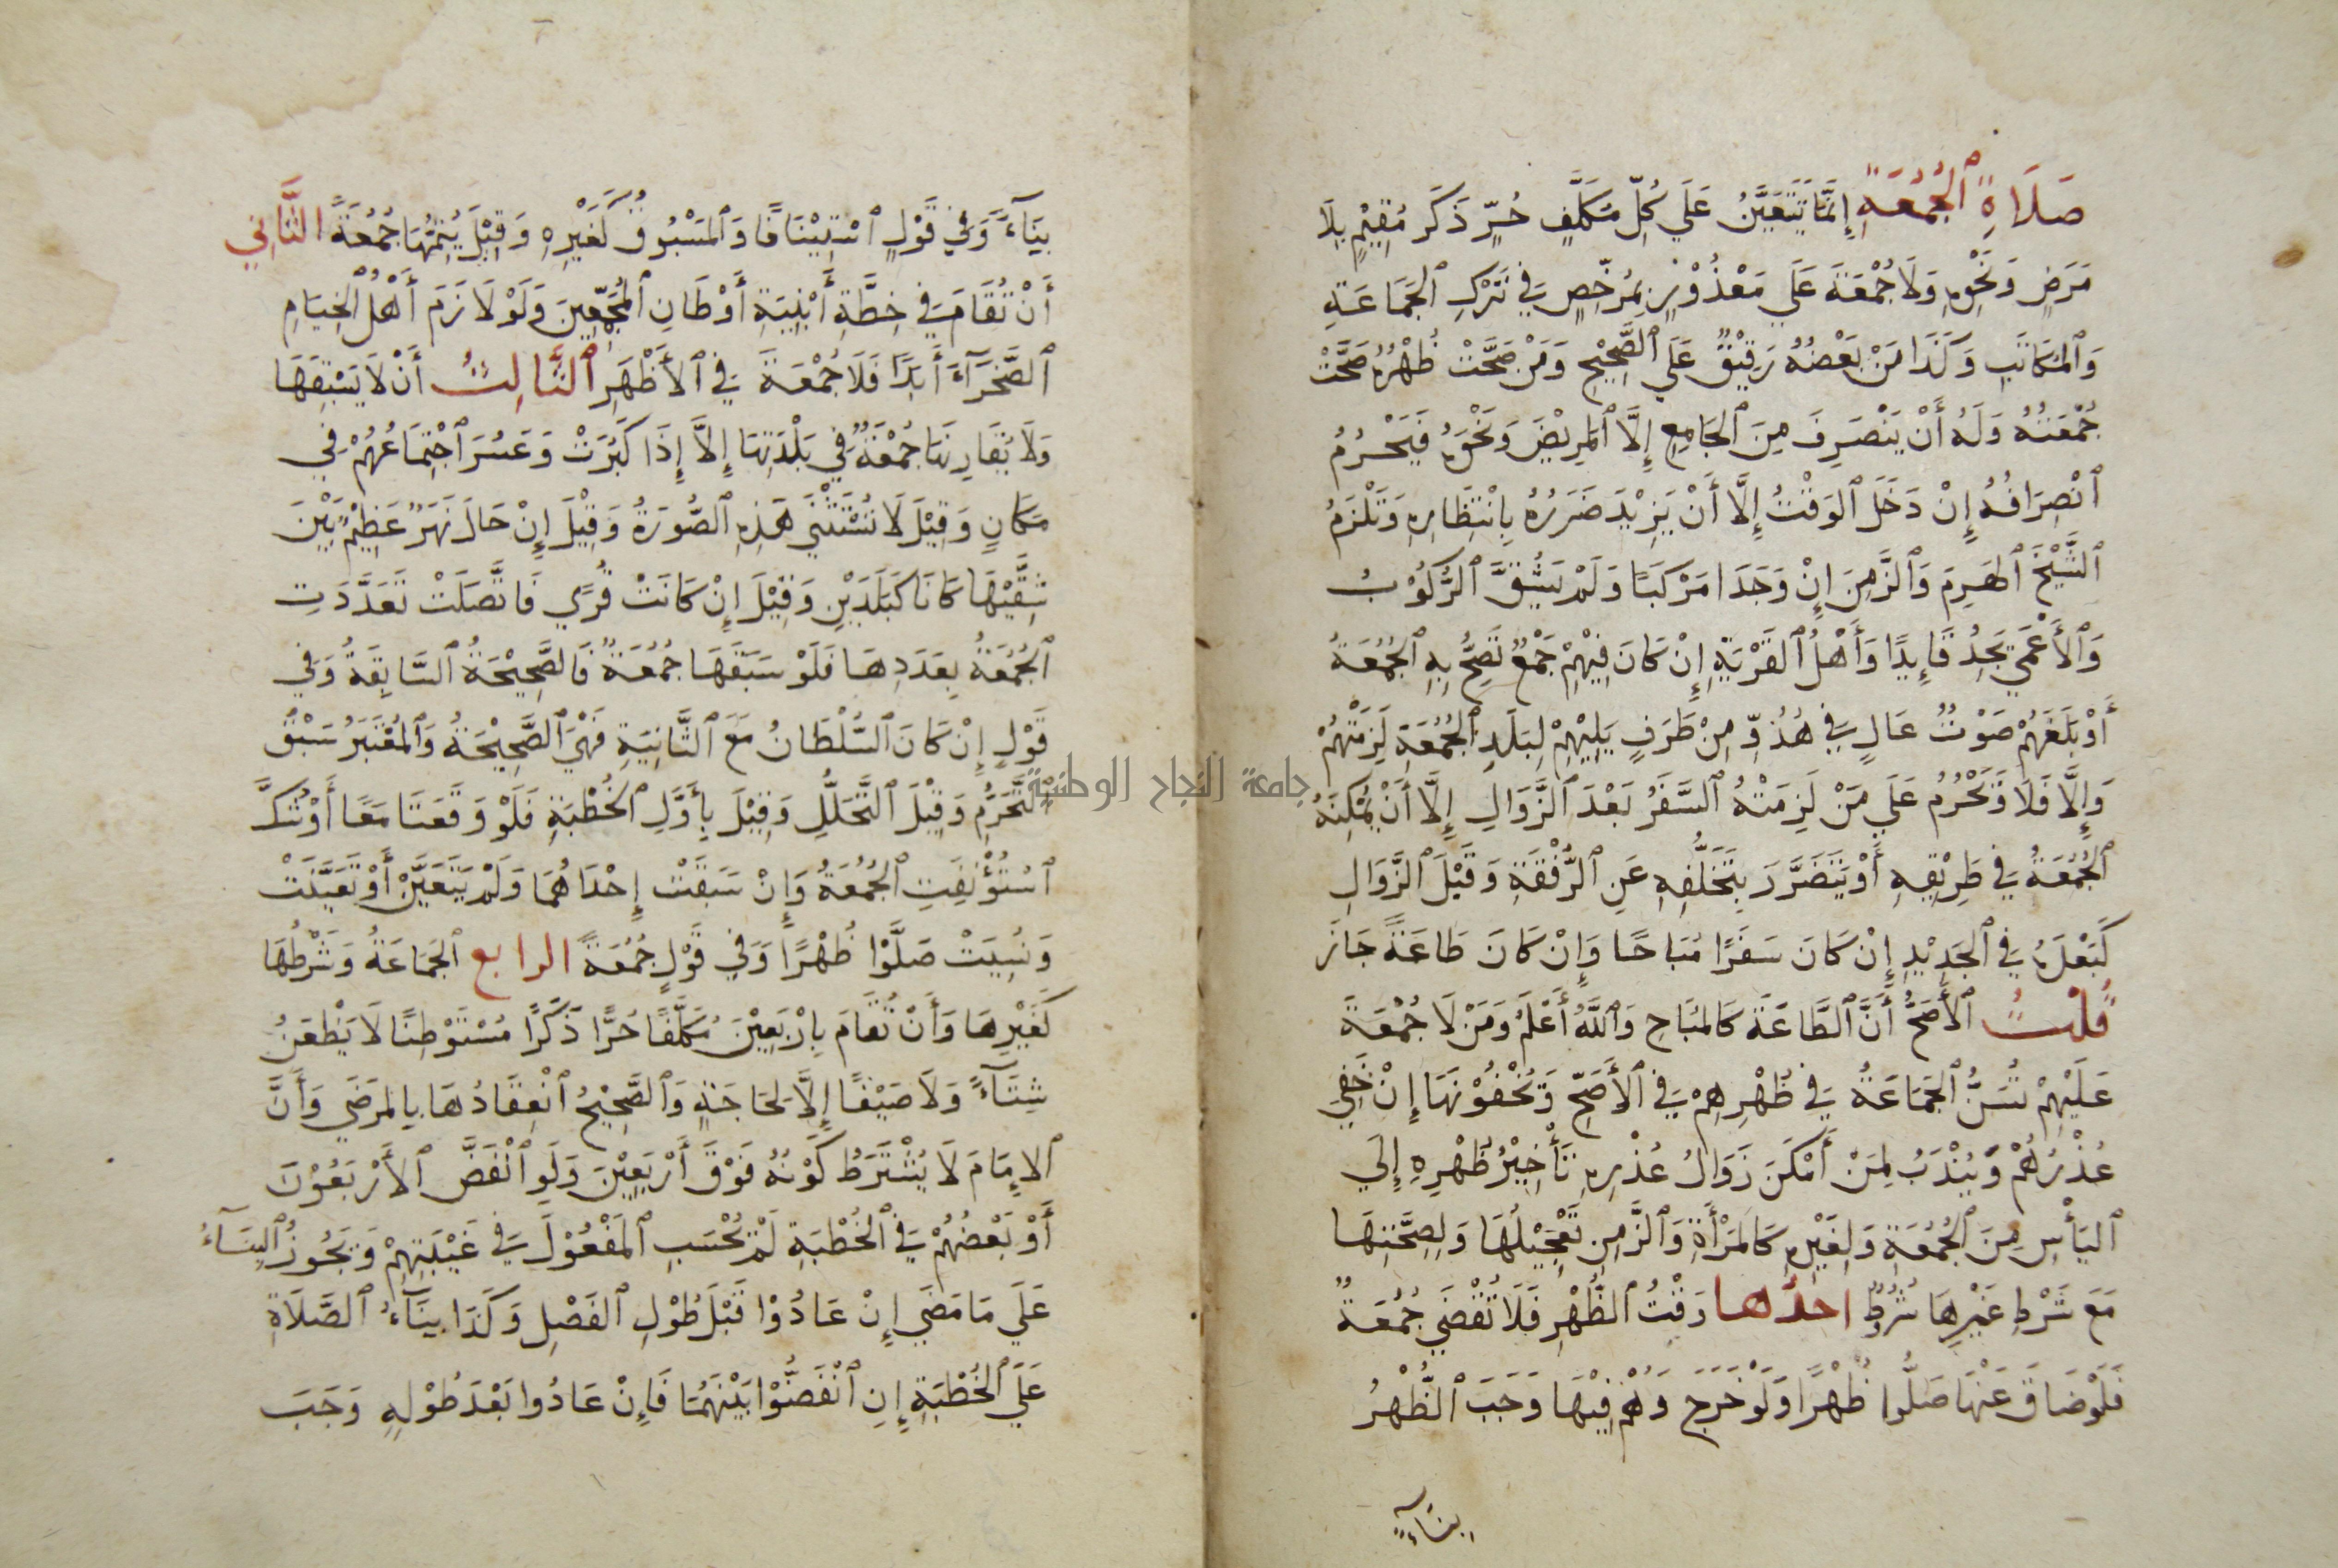 صَلَاةِ ٱلْجُمُعَةِ إِنَّمَا يَتَعَيَّنُ عَلَي كُلِّ مُكَلَّفٍ حُرٍّ ذَكَرٍ مُقِيْمٍ بِلَا
مَرَضٍ وَنَحْوِهِ وَلَا جُمْعَةَ عَلَي مَعْذُوْرٍ بِمُرَخِّصٍ فِي تَرْكِ ٱلْجَمَاعَةِ
وَٱلْمُكَاتَبِ وَكَذَا مَنْ بَعْضُهُ رَقِيْقٌ عَلَي ٱلصَّحِيْحِ وَمَنْ صَحَّتْ ظُهْرُهُ صَحَّتْ
جُمْعَتُهُ وَلَهُ أَنْ يَنْصَرِفَ مِنَ ٱلْجَامِعِ إِلَّا ٱلْمَرِيْضَ وَنَحْوَهُ فَيَحْرُمُ
ٱنْصِرَافُهُ إِنْ دَخَلَ ٱلْوَقْتُ إِلَّا أَنْ يَزِيْدَ ضَرَرُهُ بِانْتِظَارِهِ وَتَلْزَمُ
ٱلشَّيْخَ ٱلْهَرِمَ وَٱلزَّمِنَ إِنْ وَجَدَا مَرْكَبًا وَلَمْ يَشُقَّ ٱلرُّكُوْبُ
وَٱلْأَعْمَي يَجِدُ قَايِدًا وَأَهْلُ ٱلْقَرْيَةِ إِنْ كَانَ فِيْهِمْ جَمْعٌ تَصِحُّ بِهِ ٱلْجُمُعَةُ
أَوْ بَلَغَهُمْ صَوْتٌ عَالٍ فِي هُدُوٍّ مِنْ طَرَفٍ يَلِيْهِمْ لِبَلَدِ ٱلْجُمُعَةِ لَزِمَتْهُمْ
وَإِلَّا فَلَا وَيَحْرُمُ عَلَي مَنْ لَزِمَتْهُ ٱلسَّفَرُ بَعْدَ ٱلزَّوَالِ إِلَّا أَنْ يُمْكِنَهُ
ٱلْجُمُعَةُ فِي طَرِيْقِهِ أَوْ يَتَضَرَّرَ بِتَخَلُّفِهِ عَنِ ٱلرُّفْقَةِ وَقَبْلَ ٱلزَّوَالِ
كَبَعْدَهُ فِي ٱلْجَدِيْدِ إِنْ كَانَ سَفَرًا مُبَاحًا وَإِنْ كَانَ طَاعَةً جَازَ
قُلْتُ ٱلْأَصَحُّ أَنَّ ٱلطَّاعَةَ كَالْمُبَاحِ وَٱللَّهُ أَعْلَمُ وَمَنْ لَا جُمْعَةَ
عَلَيْهِمْ تُسَنُّ ٱلْجَمَاعَةُ فِي ظُهْرِهِمْ فِي ٱلْأَصَحِّ وَيُخْفُوْنَهَا إِنْ خَفِي
عُذْرُهُمْ وَيُنْدَبُ لِمَنْ أَمْكَنَ زَوَالُ عُذْرِهِ تَأْخِيْرُ ظُهْرِهِ إِلَي
ٱلْيَأْسِ مِنَ ٱلْجُمُعَةِ وَلِغَيْرِهِ كَالْمَرْأَةِ وَٱلزَّمِنِ تَعْجِيْلُهَا وَلِصِحَّتِهَا
مَعَ شَرْطِ غَيْرِهَا شُرُوْطٌ احدُها وَقْتُ ٱلظُّهْرِ فَلَا تُقْضَي جُمُعَةً
فَلَوْ ضَاقَ عَنْهَا صَلُّوا ظُهْرًا وَلَوْ خَرَجَ وَهُمْ فِيْهَا وَجَبَ ٱلظُّهْرُ
بِنَاءً
بِنَآءً وَفِي قَوْلٍ ٱسْتِيْنَافًا وَٱلْمَسْبُوقُ كَغَيْرِهِ وَقِيْلَ يُتِمُّهَا جُمُعَةً الثَّانِي
أَنْ تُقَامَ فِي خِطَّةِ أَبْنِيَةِ أَوْطَانِ ٱلْمُجَمِّعِيْنَ وَلَوْ لَازَمَ أَهْلُ ٱلْخِيَامِ
ٱلصَّحْرَآءَ أَبَدًا فَلَا جُمْعَةَ فِي ٱلْأَظْهَرِ ٱلثَّالِثُ أَنْ لَا يَسْبِقَهَا
وَلَا يُقَارِنَهَا جُمْعَةٌ فِي بَلْدَتِهَا إِلَّا إِذَا كَبُرَتْ وَعَسُرَ ٱجْتِمَاعُهُمْ فِي
مَكَانٍ وَقِيْلَ لَا تُسْتَثْنَي هَذِهِ ٱلصُّورَةُ وَقِيْلَ إِنْ حَالَ نَهَرٌ عَظِيْمٌ بَيْنَ
شِقَّيْهَا كَانَا كَبَلَدَيْنِ وَقِيْلَ إِنْ كَانَتْ قُرًي فَاتَّصَلَتْ تَعَدَّدَتِ
ٱلْجُمُعَةُ بِعَدَدِهَا فَلَوْ سَبَقَهَا جُمُعَةٌ فَالصَّحِيْحَةُ ٱلسَّابِقَةُ وَفِي
قَوْلٍ إِنْ كَانَ ٱلسُّلْطَانُ مَعَ ٱلثَّانِيَةِ فَهِيَ ٱلصَّحِيْحَةُ وَٱلْمُعْتَبَرُ سَبْقُ
ٱلتَّحَرُّمِ وَقِيْلَ ٱلتَّحَلُّلِ وَقِيْلَ بِأَوَّلِ ٱلْخُطْبَةِ فَلَوْ وَقَعَتَا مَعًا أَوْ شُكَّ
ٱسْتُؤْنِفَتِ ٱلْجُمُعَةُ وَإِنْ سَبَقَتْ إِحْدَاهُمَا وَلَمْ يَتَعَيَّنْ أَوْ تَعَيَّنَتْ
وَنُسِيَتْ صَلَّوْا ظُهْرًا وَفِي قَوْلٍ جُمُعَةً الرابع ٱلْجَمَاعَةُ وَشَرْطُهَا
كَغَيْرِهَا وَأَنْ تُقَامَ بِأَرْبَعِيْنَ مُكَلَّفًا حُرًّا ذَكَرًا مُسْتَوْطِنًا لَا يَظْعَنُ
شِتَآءً وَلَا صَيْفًا إِلَّا لِحَاجَةٍ وَٱلصَّحِيْحُ ٱنْعِقَادُهَا بِالْمَرْضَي وَأَنَّ
ٱلْإِمَامَ لَا يُشْتَرَطُ كَوْنُهُ فَوْقَ أَرْبَعِيْنَ وَلَوِ ٱنْفَضَّ ٱلْأَرْبَعُوْنَ
أَوْ بَعْضُهُمْ فِي ٱلْخُطْبَةِ لَمْ يُحْسَبِ ٱلْمَفْعُوْلُ فِي غَيْبَتِهِمْ وَيَجُوزُ ٱلْبِنَآءُ
عَلَي مَا مَضَي إِنْ عَادُوْا قَبْلَ طُوْلِ ٱلْفَصْلِ وَكَذَا بِنَآءُ ٱلصَّلَاةِ
عَلَي ٱلْخُطْبَةِ إِنِ ٱنْفَضُّوْا بَيْنَهُمَا فَإِنْ عَادُوا بَعْدَ طُوْلِهِ وَجَبَ
جامعة النجاح الوطنية